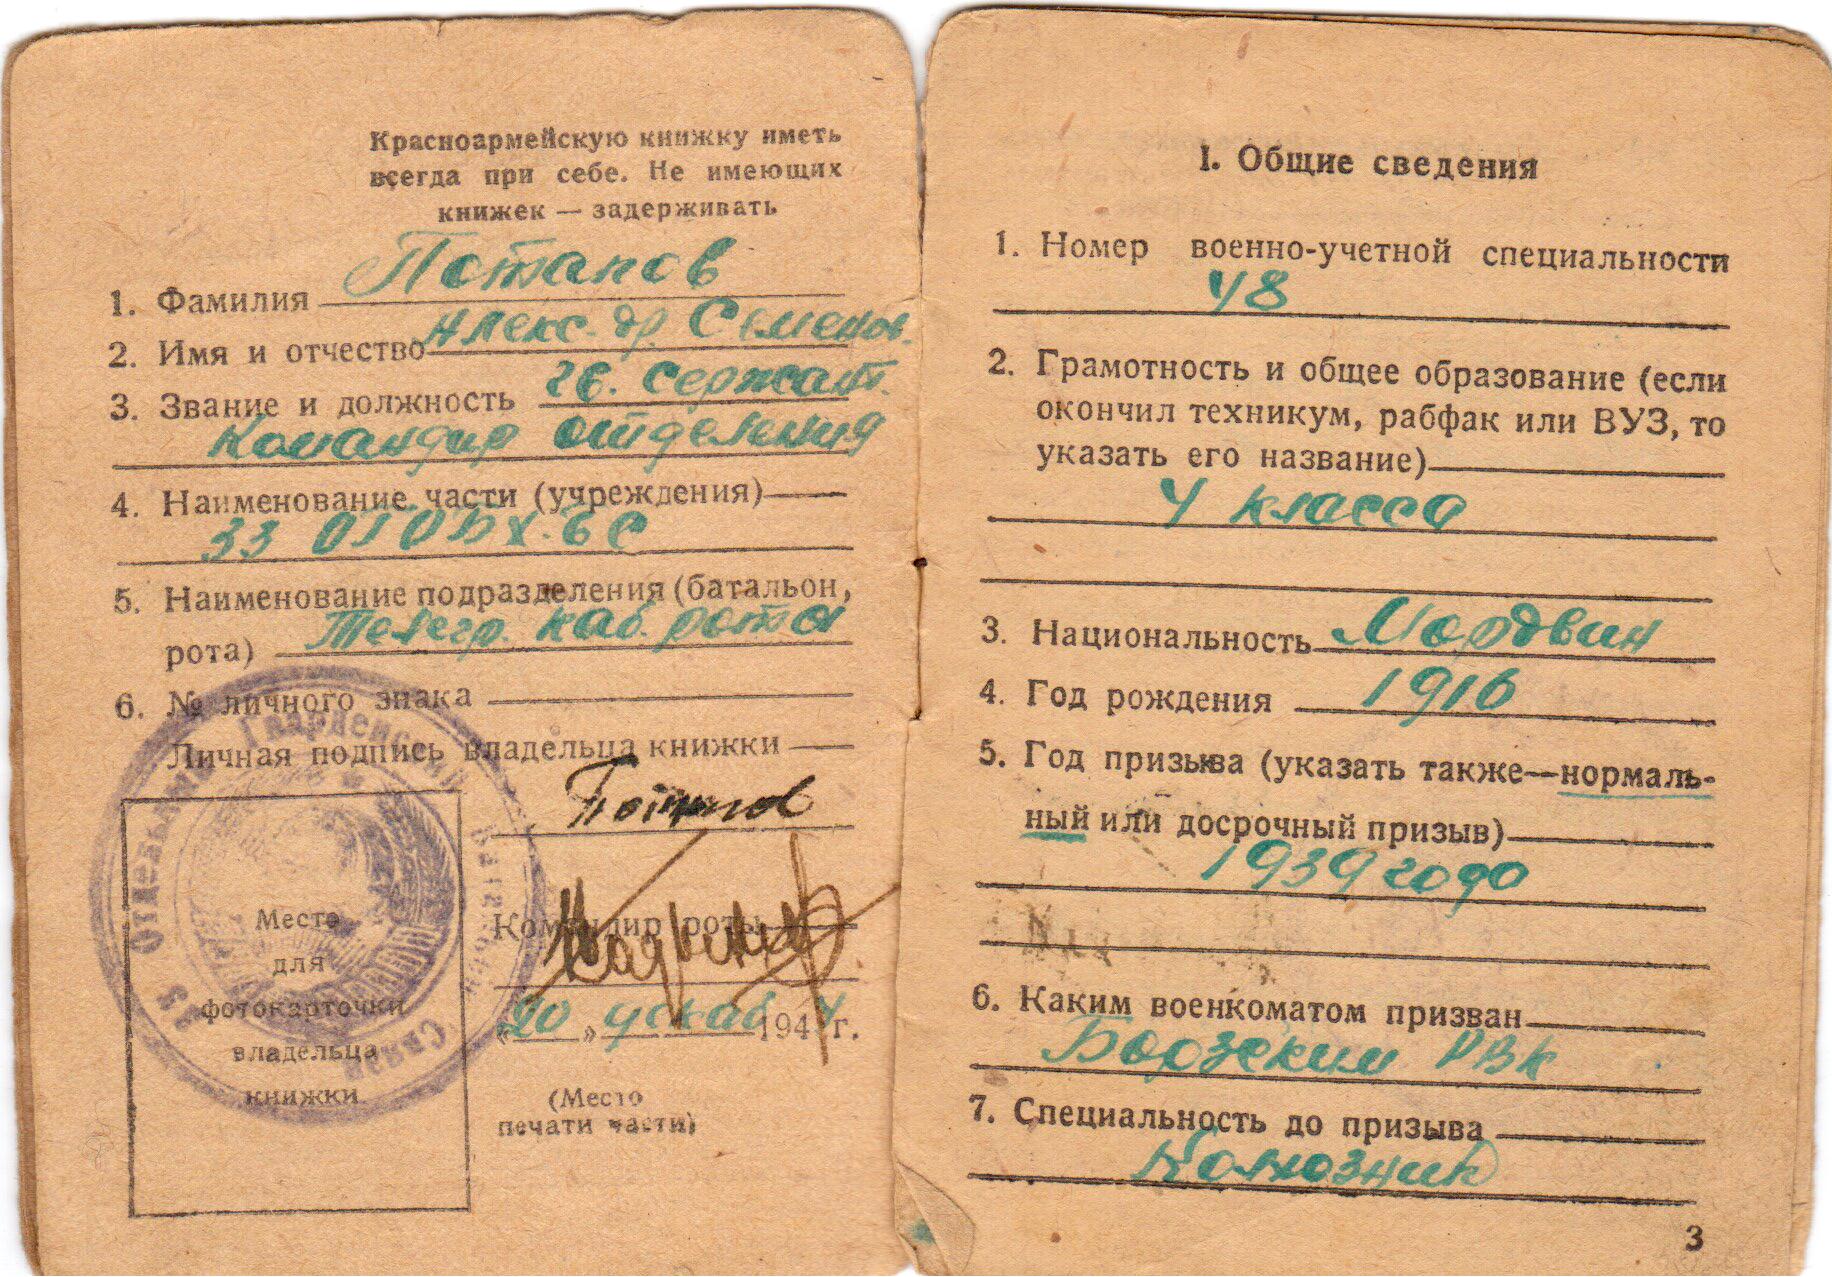 Красноармейскую книжку иметь
всегда при себе. Не имеющих
книжек — задерживать
1. Фамилия Потапов
2. Имя и отчество Алекс-др. Семенов.
3. Звание и должность гв. сержант.
Командир отделения
4. Наименование части (учреждения)
33
5. Наименование подразделения (батальон,
рота) Телегр. каб. роты
6. № личного знака
Личная подпись владельца книжки
Потапов
Командир роты
«20» декаб 1944 г.
Место
для
фотокарточки
владельца
книжки
(Место
печати части)
33 Отдельный Гвардейский Батальон Связи
I. Общие сведения
1. Номер военно-учетной специальности
48
2. Грамотность и общее образование (если
окончил техникум, рабфак или ВУЗ, то
указать его название)
4 класса
3. Национальность Мордвин
4. Год рождения 1916
5. Год призыва (указать также—нормаль-
ный или досрочный призыв)
1939 года
6. Каким военкоматом призван
Борзским РВК
7. Специальность до призыва
Колхозник
3